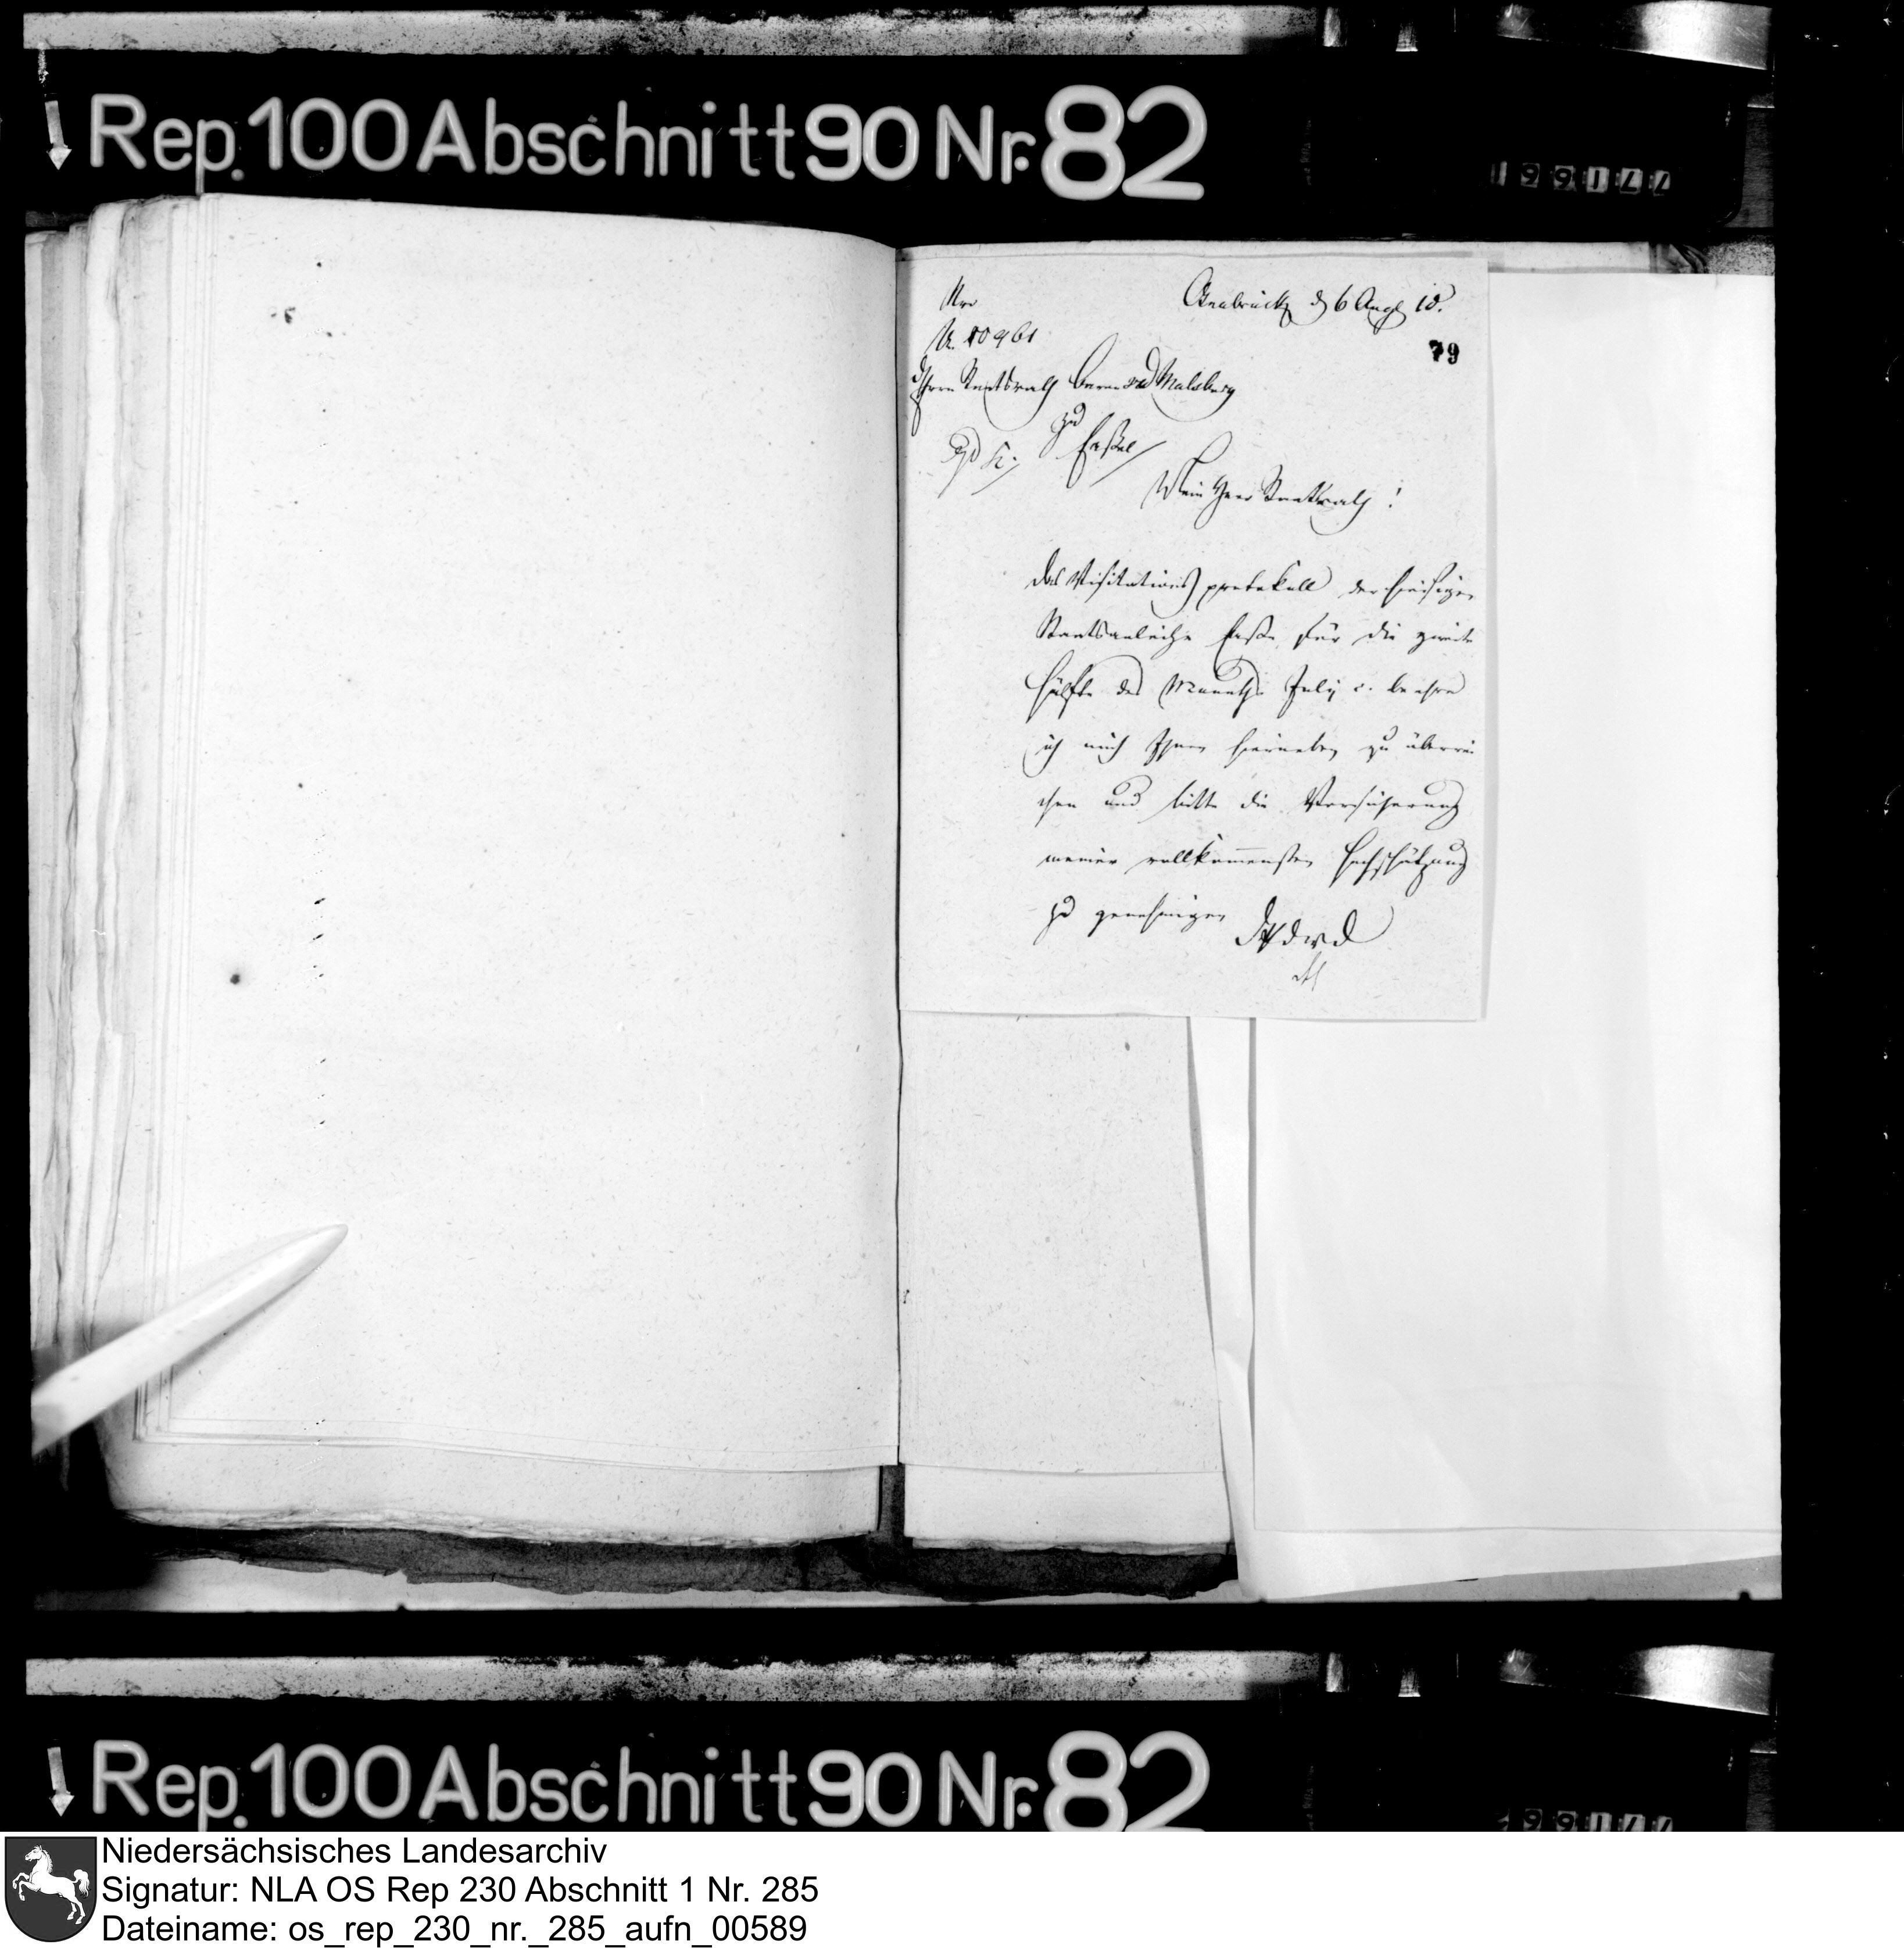 Rep. 100 Abschnitt 90 Nr. 82
Nro
N. 10961
Osnabrück d 6 Aug 10.
79
Herrn Staatsrath Baron von Malsburg
zu
Caßel
Mein Herr Staatsrath!
Das Visitations protokoll der hiesigen
Staatsanleihe Casse für die zweite
Hälfte des Monaths July c. beehre
ich mich Ihnen hierneben zu überrei
chen und bitte die Versicherung
meiner vollkommensten Hochschätzung
zu genehmigen
Rep. 100 Abschnitt 90 Nr. 82
Niedersächsisches Landesarchiv
Signatur: NLA OS Rep 230 Abschnitt 1 Nr. 285
Dateiname: os_rep_230_nr._285_aufn_00589